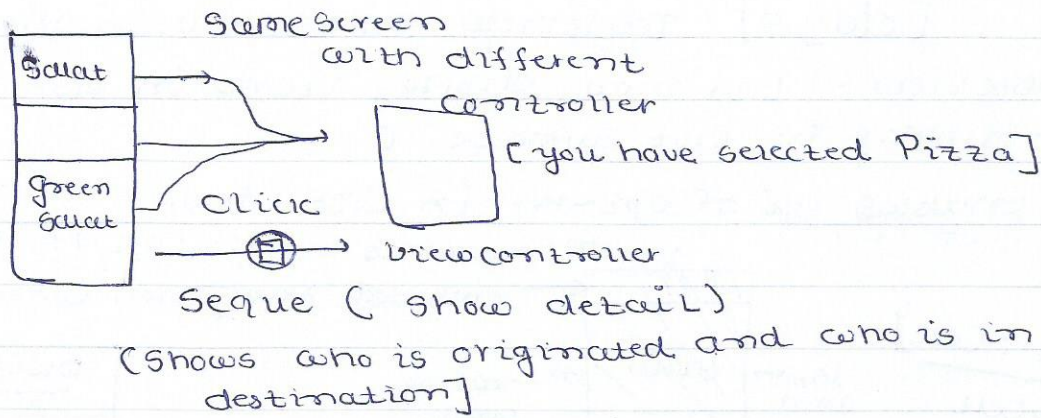 Same screen
with different
controller
Salat
[you have selected Pizza]
green
salat
click
viewcontroller
Seque ( show detail)
(shows who is originated and who is in
destination]